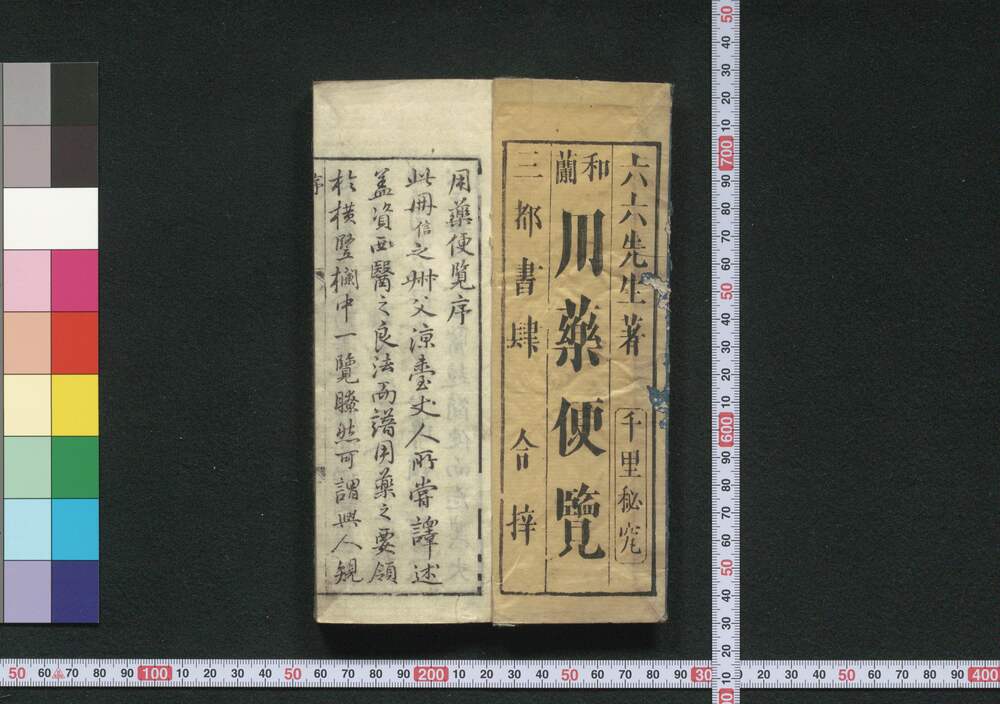 六六先生著
千里秘究
和蘭
用藥便覽
三都書肆合梓
用藥便覽序
此冊信之舛父涼臺丈人所嘗譯述
蓋資西醫之良法而譜用藥之要領
於橫竪欄中一覽瞭然可謂與人規
序
50 60 70 80 90 100 10 20 30 40 50 60 70 80 90 200 10 20 30 40 50 60 70 80 90 300 20 30 40 50 60 70 80 90 400
50 40 30 20 10 700 90 80 70 60 50 40 30 20 10 600 90 80 70 60 50 40 30 20 10